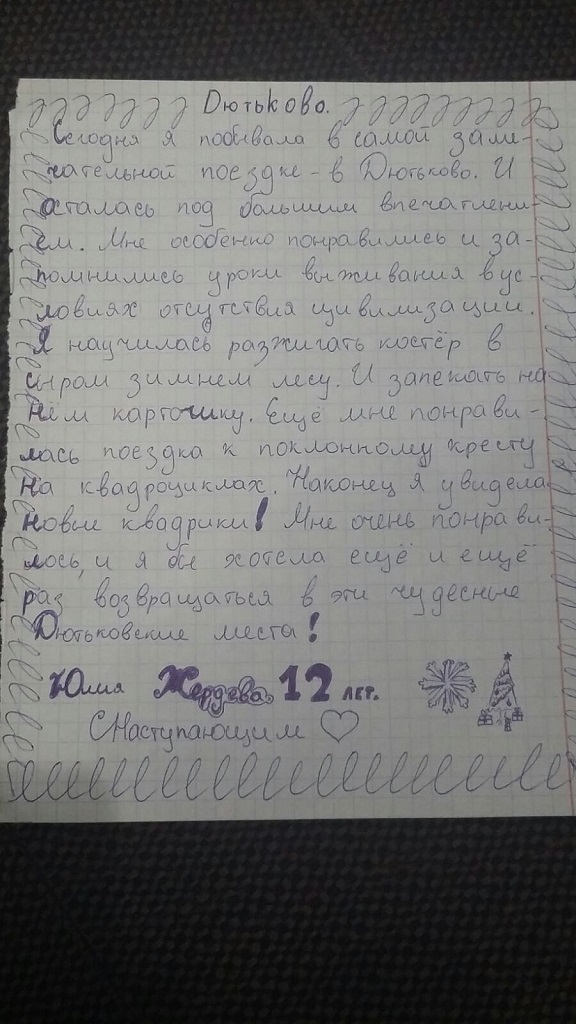 Дютьково.
Сегодня я побывала в самой заме-
чательной поездке - в Дютьково. И
осталась под большим впечатлени-
ем. Мне особенно понравились и за-
помнились уроки выживания в ус-
ловиях отсутствия цивилизации.
Я научилась разжигать костёр в
сыром зимнем лесу. И запекать на
нём карточку. Ещё мне понрави-
лась поездка к поклонному кресту
на квадроциклах. Наконец я увидела
новые квадрики! Мне очень понрави-
лось, и я бы хотела ещё и ещё
раз возвращаться в эти чудесные
Дютьковские места!
Юлия Жердева, 12 лет.
С Наступающим ♡